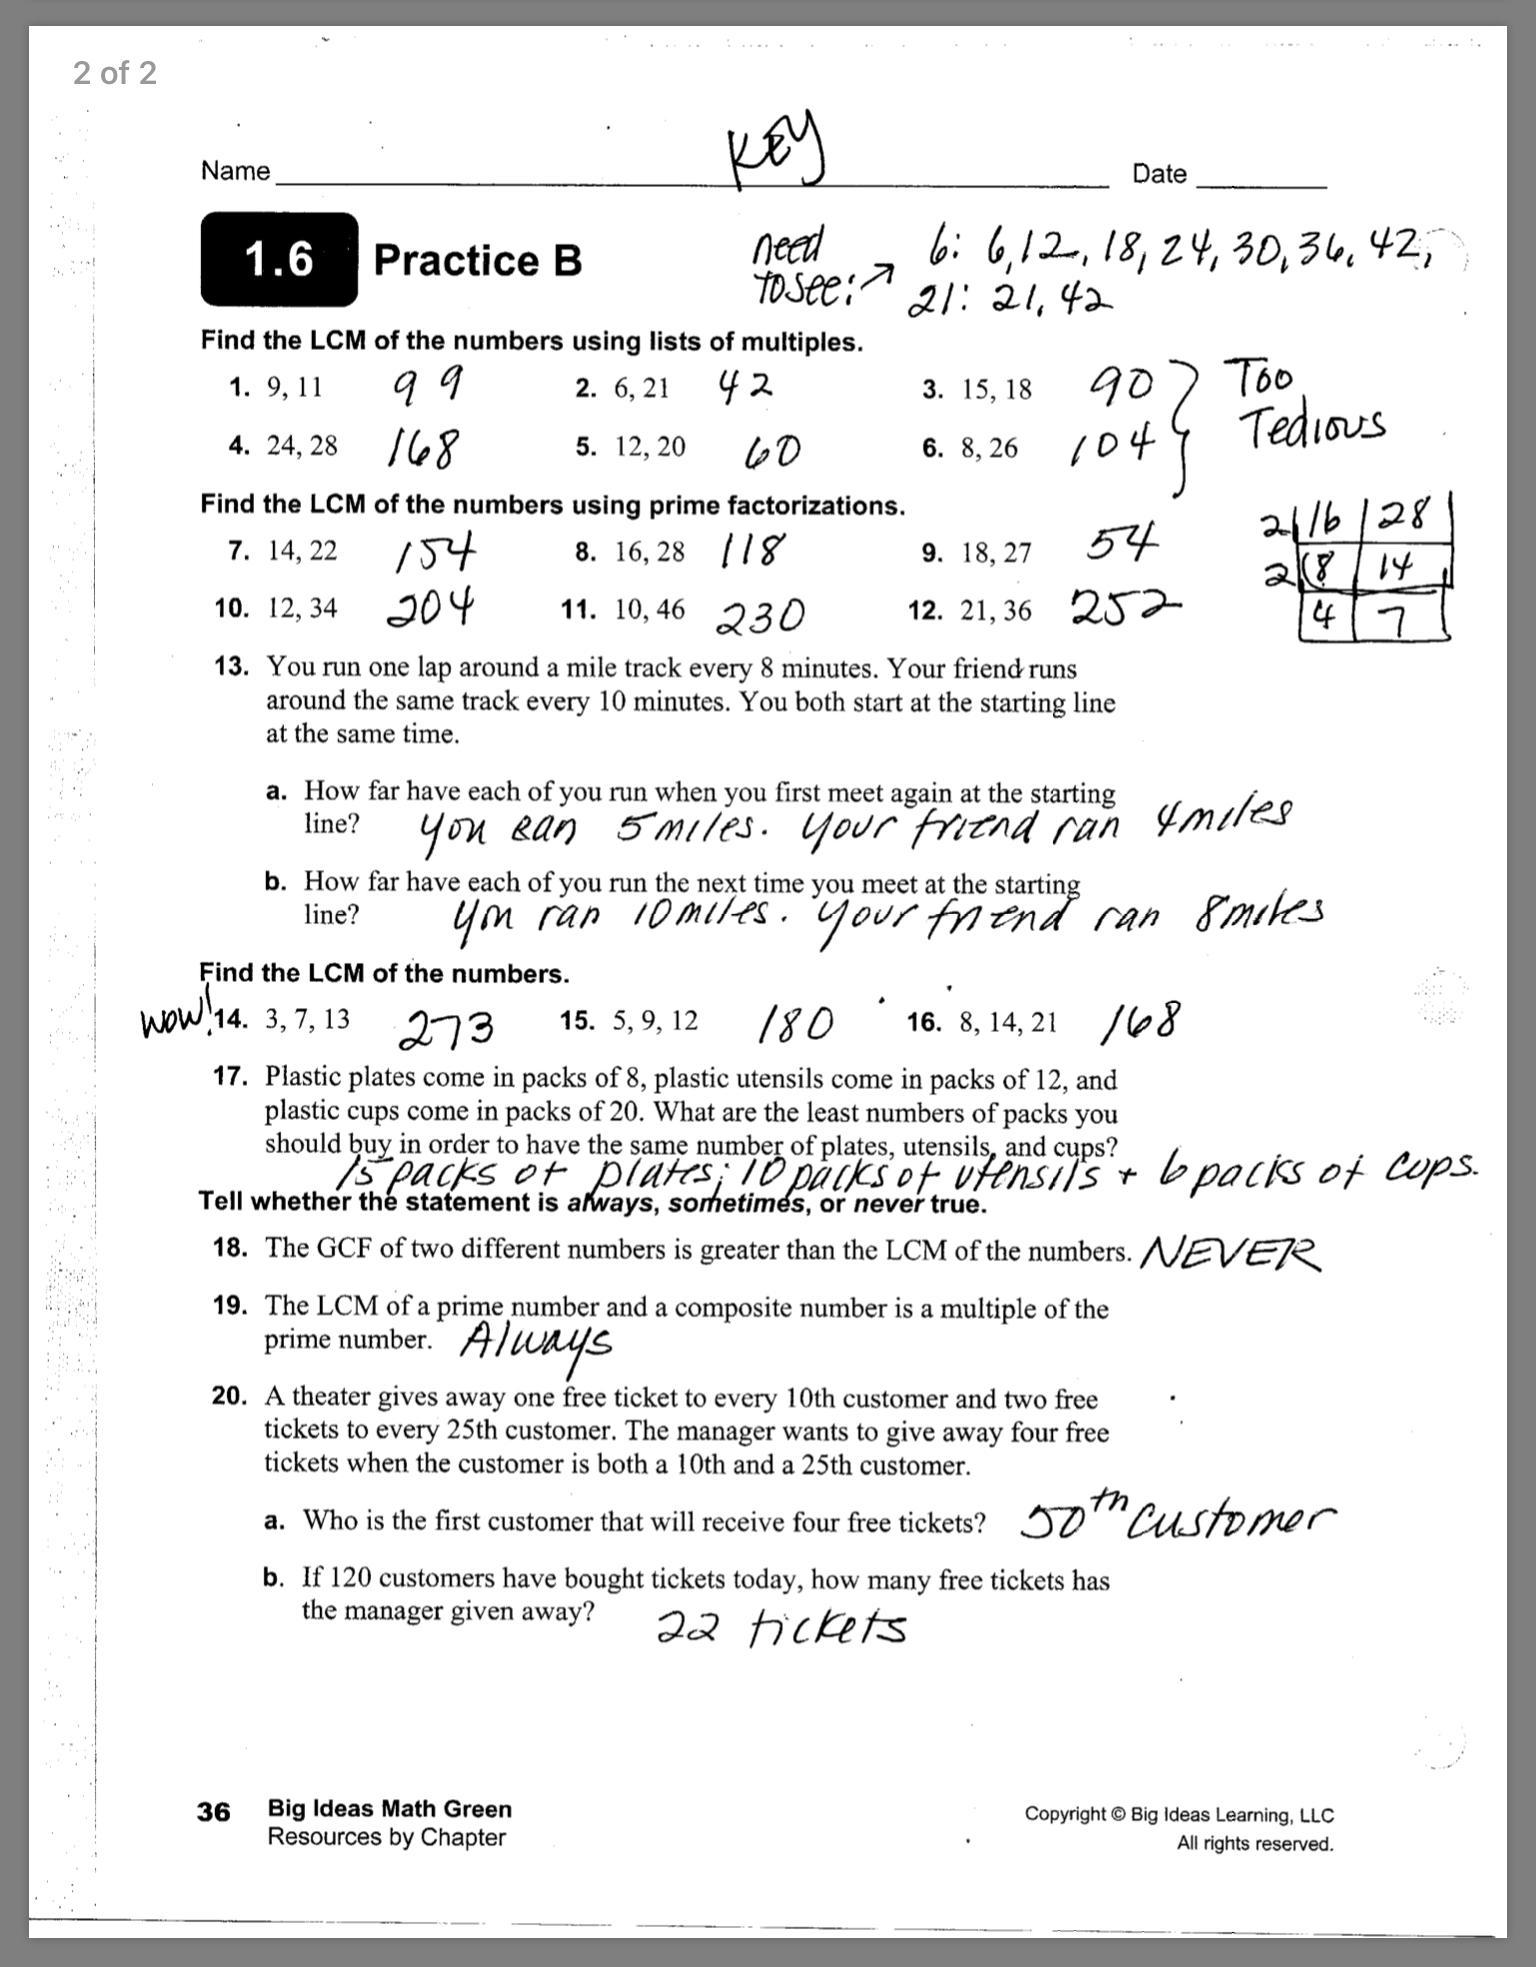 2 of 2
KEY
Name
Date
1.6 Practice B
need to see: → 6: 6, 12, 18, 24, 30, 36, 42,
21: 21, 42
Find the LCM of the numbers using lists of multiples.
1. 9, 11 99 2. 6, 21 42 3. 15, 18 90 } Too
4. 24, 28 168 5. 12, 20 60 6. 8, 26 104 } Tedious
Find the LCM of the numbers using prime factorizations.
7. 14, 22 154 8. 16, 28 118 9. 18, 27 54
10. 12, 34 204 11. 10, 46 230 12. 21, 36 252
2 16 28
2 8 14
4 7
13. You run one lap around a mile track every 8 minutes. Your friend runs
around the same track every 10 minutes. You both start at the starting line
at the same time.
a. How far have each of you run when you first meet again at the starting
line? you ran 5 miles. Your friend ran 4 miles
b. How far have each of you run the next time you meet at the starting
line? you ran 10 miles. Your friend ran 8 miles
Find the LCM of the numbers.
wow! 14. 3, 7, 13 273 15. 5, 9, 12 180 16. 8, 14, 21 168
17. Plastic plates come in packs of 8, plastic utensils come in packs of 12, and
plastic cups come in packs of 20. What are the least numbers of packs you
should buy in order to have the same number of plates, utensils, and cups?
15 packs of plates; 10 packs of utensils + 6 packs of cups.
Tell whether the statement is always, sometimes, or never true.
18. The GCF of two different numbers is greater than the LCM of the numbers. NEVER
19. The LCM of a prime number and a composite number is a multiple of the
prime number. Always
20. A theater gives away one free ticket to every 10th customer and two free
tickets to every 25th customer. The manager wants to give away four free
tickets when the customer is both a 10th and a 25th customer.
a. Who is the first customer that will receive four free tickets? 50th customer
b. If 120 customers have bought tickets today, how many free tickets has
the manager given away? 22 tickets
36 Big Ideas Math Green
Resources by Chapter
Copyright © Big Ideas Learning, LLC
All rights reserved.